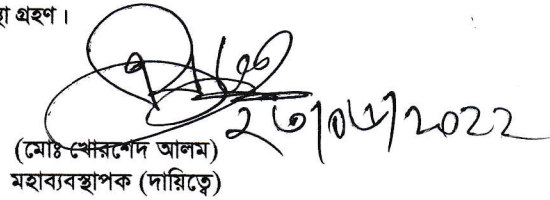 গ্রহণ।
২৩/০৬/২০২২
(মোঃ খোরশেদ আলম)
মহাব্যবস্থাপক (দায়িত্বে)